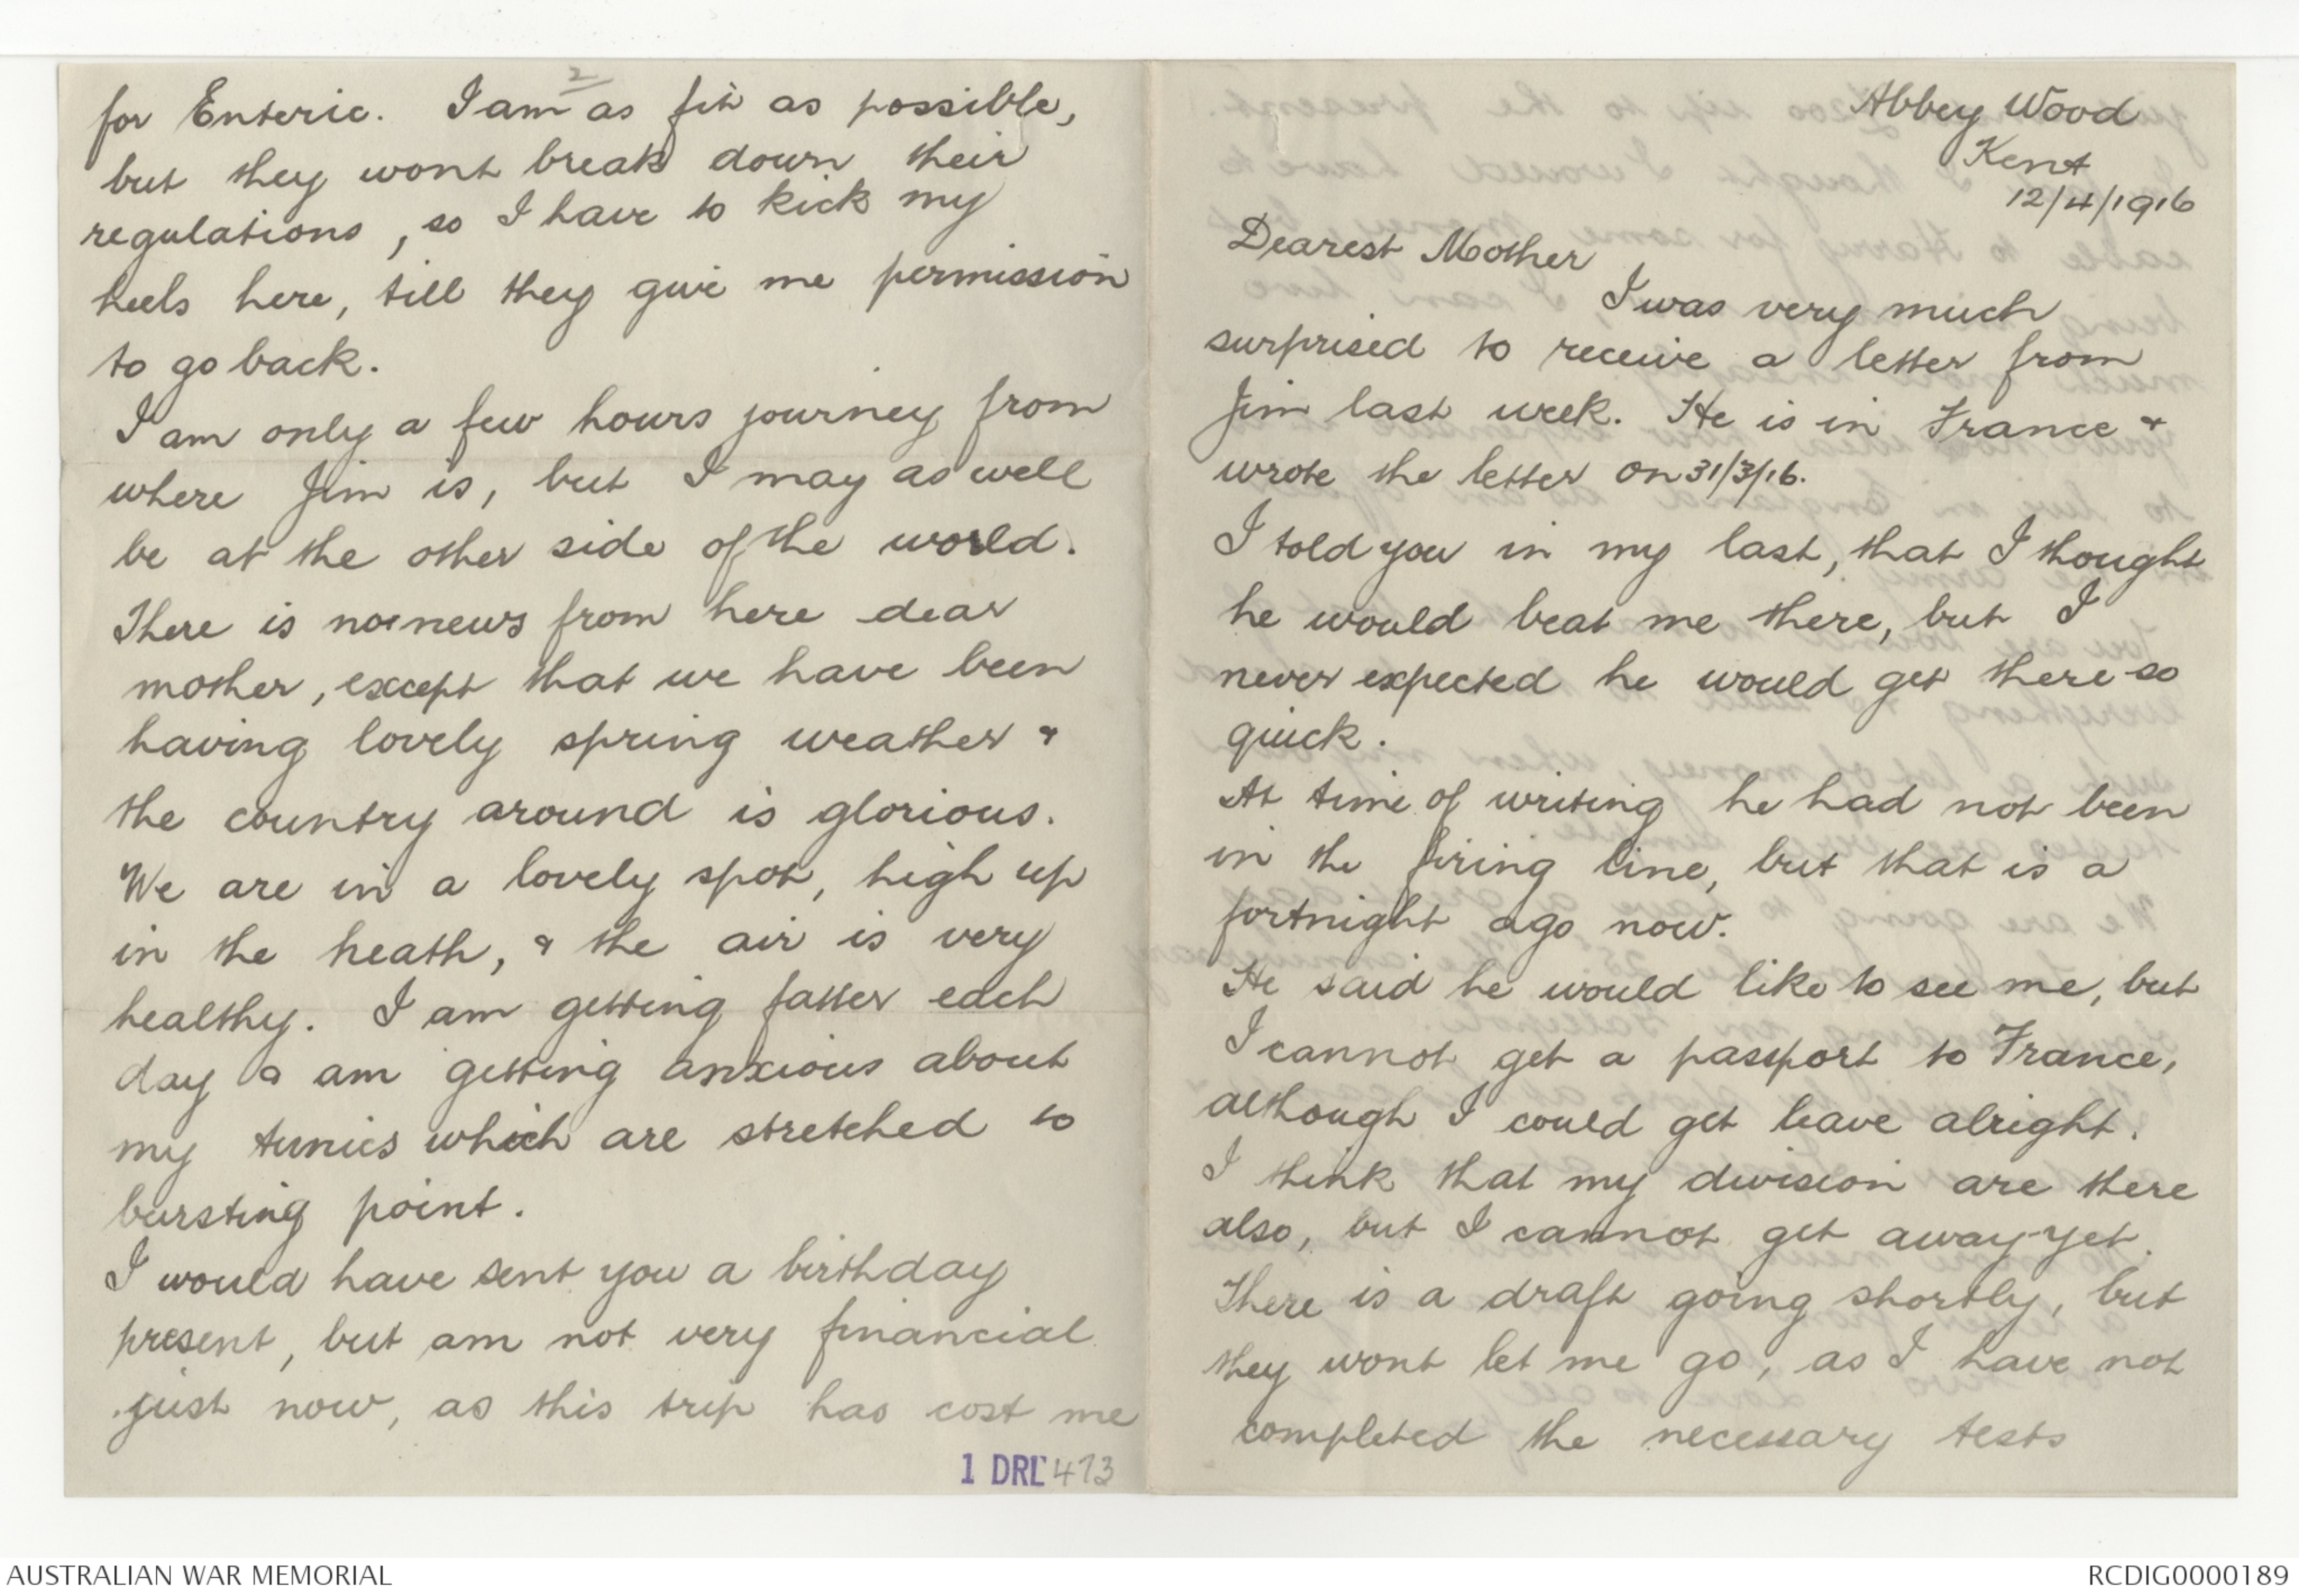 Abbey Wood
Kent
12/4/1916
Dearest Mother
I was very much
surprised to receive a letter from
Jim last week. He is in France &
wrote the letter on 31/3/16.
I told you in my last, that I thought
he would beat me there, but I
never expected he would get there so
quick.
At time of writing he had not been
in the firing line, but that is a
fortnight ago now.
He said he would like to see me, but
I cannot get a passport to France,
although I could get leave alright.
I think that my division are there
also, but I cannot get away yet.
There is a draft going shortly, but
they wont let me go, as I have not
completed the necessary tests
2
for Enteric. I am as fit as possible,
but they wont break down their
regulations, so I have to kick my
heels here, till they give me permission
to go back.
I am only a few hours journey from
where Jim is, but I may as well
be at the other side of the world.
There is no news from here dear
mother, except that we have been
having lovely spring weather &
the country around is glorious.
We are in a lovely spot, high up
in the heath, & the air is very
healthy. I am getting fatter each
day & am getting anxious about
my tunics which are stretched to
bursting point.
I would have sent you a birthday
present, but am not very financial
just now, as this trip has cost me
1 DRL 473
AUSTRALIAN WAR MEMORIAL
RCDIG0000189